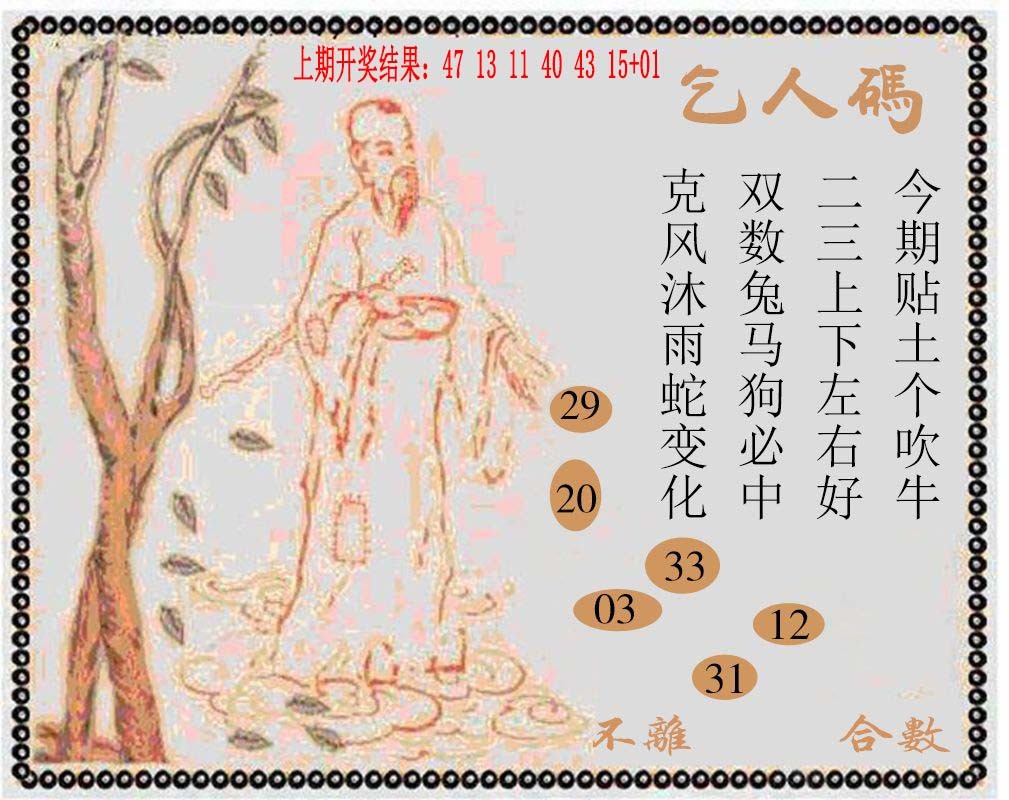 上期开奖结果：47 13 11 40 43 15+01
乞人碼
今期贴土个吹牛
二三上下左右好
双数兔马狗必中
克风沐雨蛇变化
29
20
33
03
12
31
不離
合數